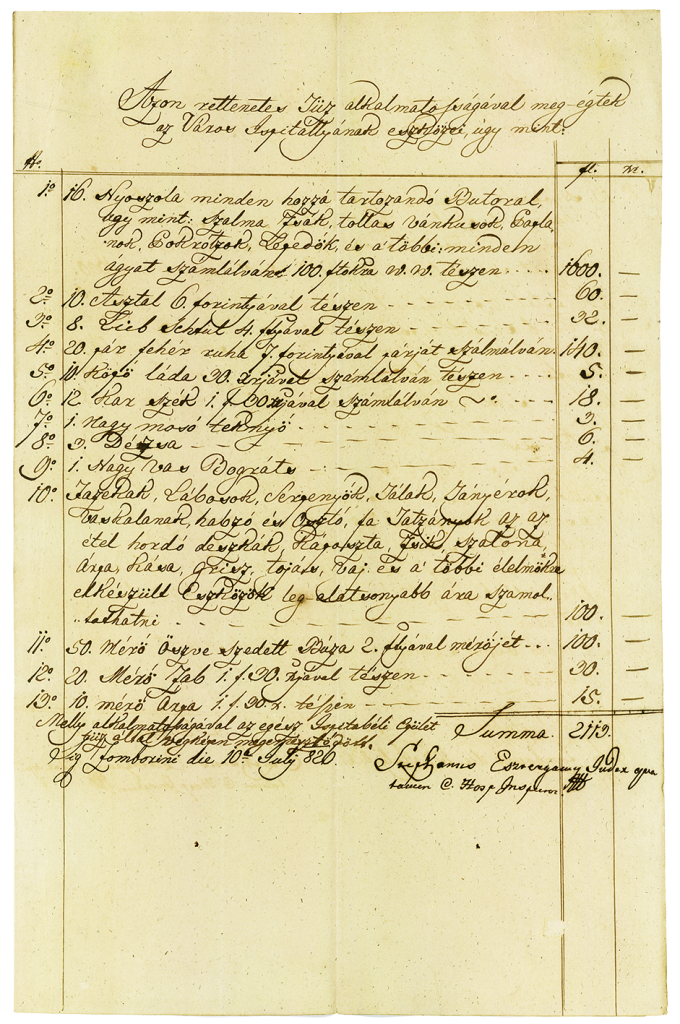 Azon rettenetes Tüz alkalmatosságával meg-égtek
az Város Ispitállyának eszközei, úgy mint:
No. fl. xr.
1o 16. Nyoszola minden hozzá tartozandó Butoral,
úgy mint: szalma 'Sák, tollas vánkusok, Papla,
nok, Pokrótzok, Lepedők, és a' többi: minden
ágyat számlálván 100. ftokra W. W. tészen .... 1600. —
2o 10. Asztal 6. forintyával tészen — 60. —
3o 8. Lieb Schűl 4. ftyával tészen — 32. —
4o 20. pár fehér ruha 7. forintyával párját szálmálván. 140. —
5o 10.Köpő láda 30. xrjával számlálván tészen ... 5. —
6o 12. Kar szék 1. f 30 xrjával számlálván 18. —
7o 1. Nagy mosó teknyő — 3. —
8o 3. Désa — 6. —
9o 1. Nagy Vas Bográts — 4. —
10o Fazekak, Lábosok, Serpenyők, Tálak, Tányérok,
Vaskalanak, habzó és Osztó, fa Tatzányok az az
étel hordó deszkák, Káposzta, 'Sír, szalonna
Árpa, Kása, Grisz, tojás, Vaj és a' többi élelmökre
elkészült Eszközök leg alatsonyabb ára szamol,
,,tathatni — 100. —
11o 50. Mérő Öszve szedett Búza 2. ftyával mérőjét ... 100. —
12o 20. Mérő Zab 1. f. 30. xrjával tészen 30. —
13o 10. mérő Árpa 1. f. 30. x. tészen — 15. —
Melly alkalmatosságával az egész Ispitabéli Épület Summa. 2113.
tűz által végképen megemésztődött.
Sig Zomborini die 10a July 826
Stephanus Esztergamy Judex qua
tamen C. Hosp Inspector